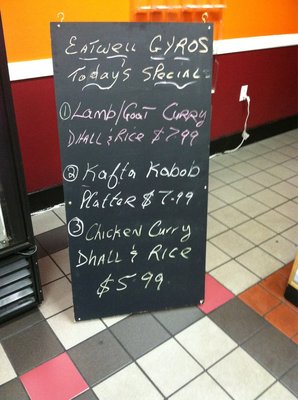 Eatwell Gyros
Today's Special
① Lamb/Goat Curry
Dhall & Rice $7.99
② Kafta Kabob
Platter $7.99
③ Chicken Curry
Dhall & Rice
$5.99